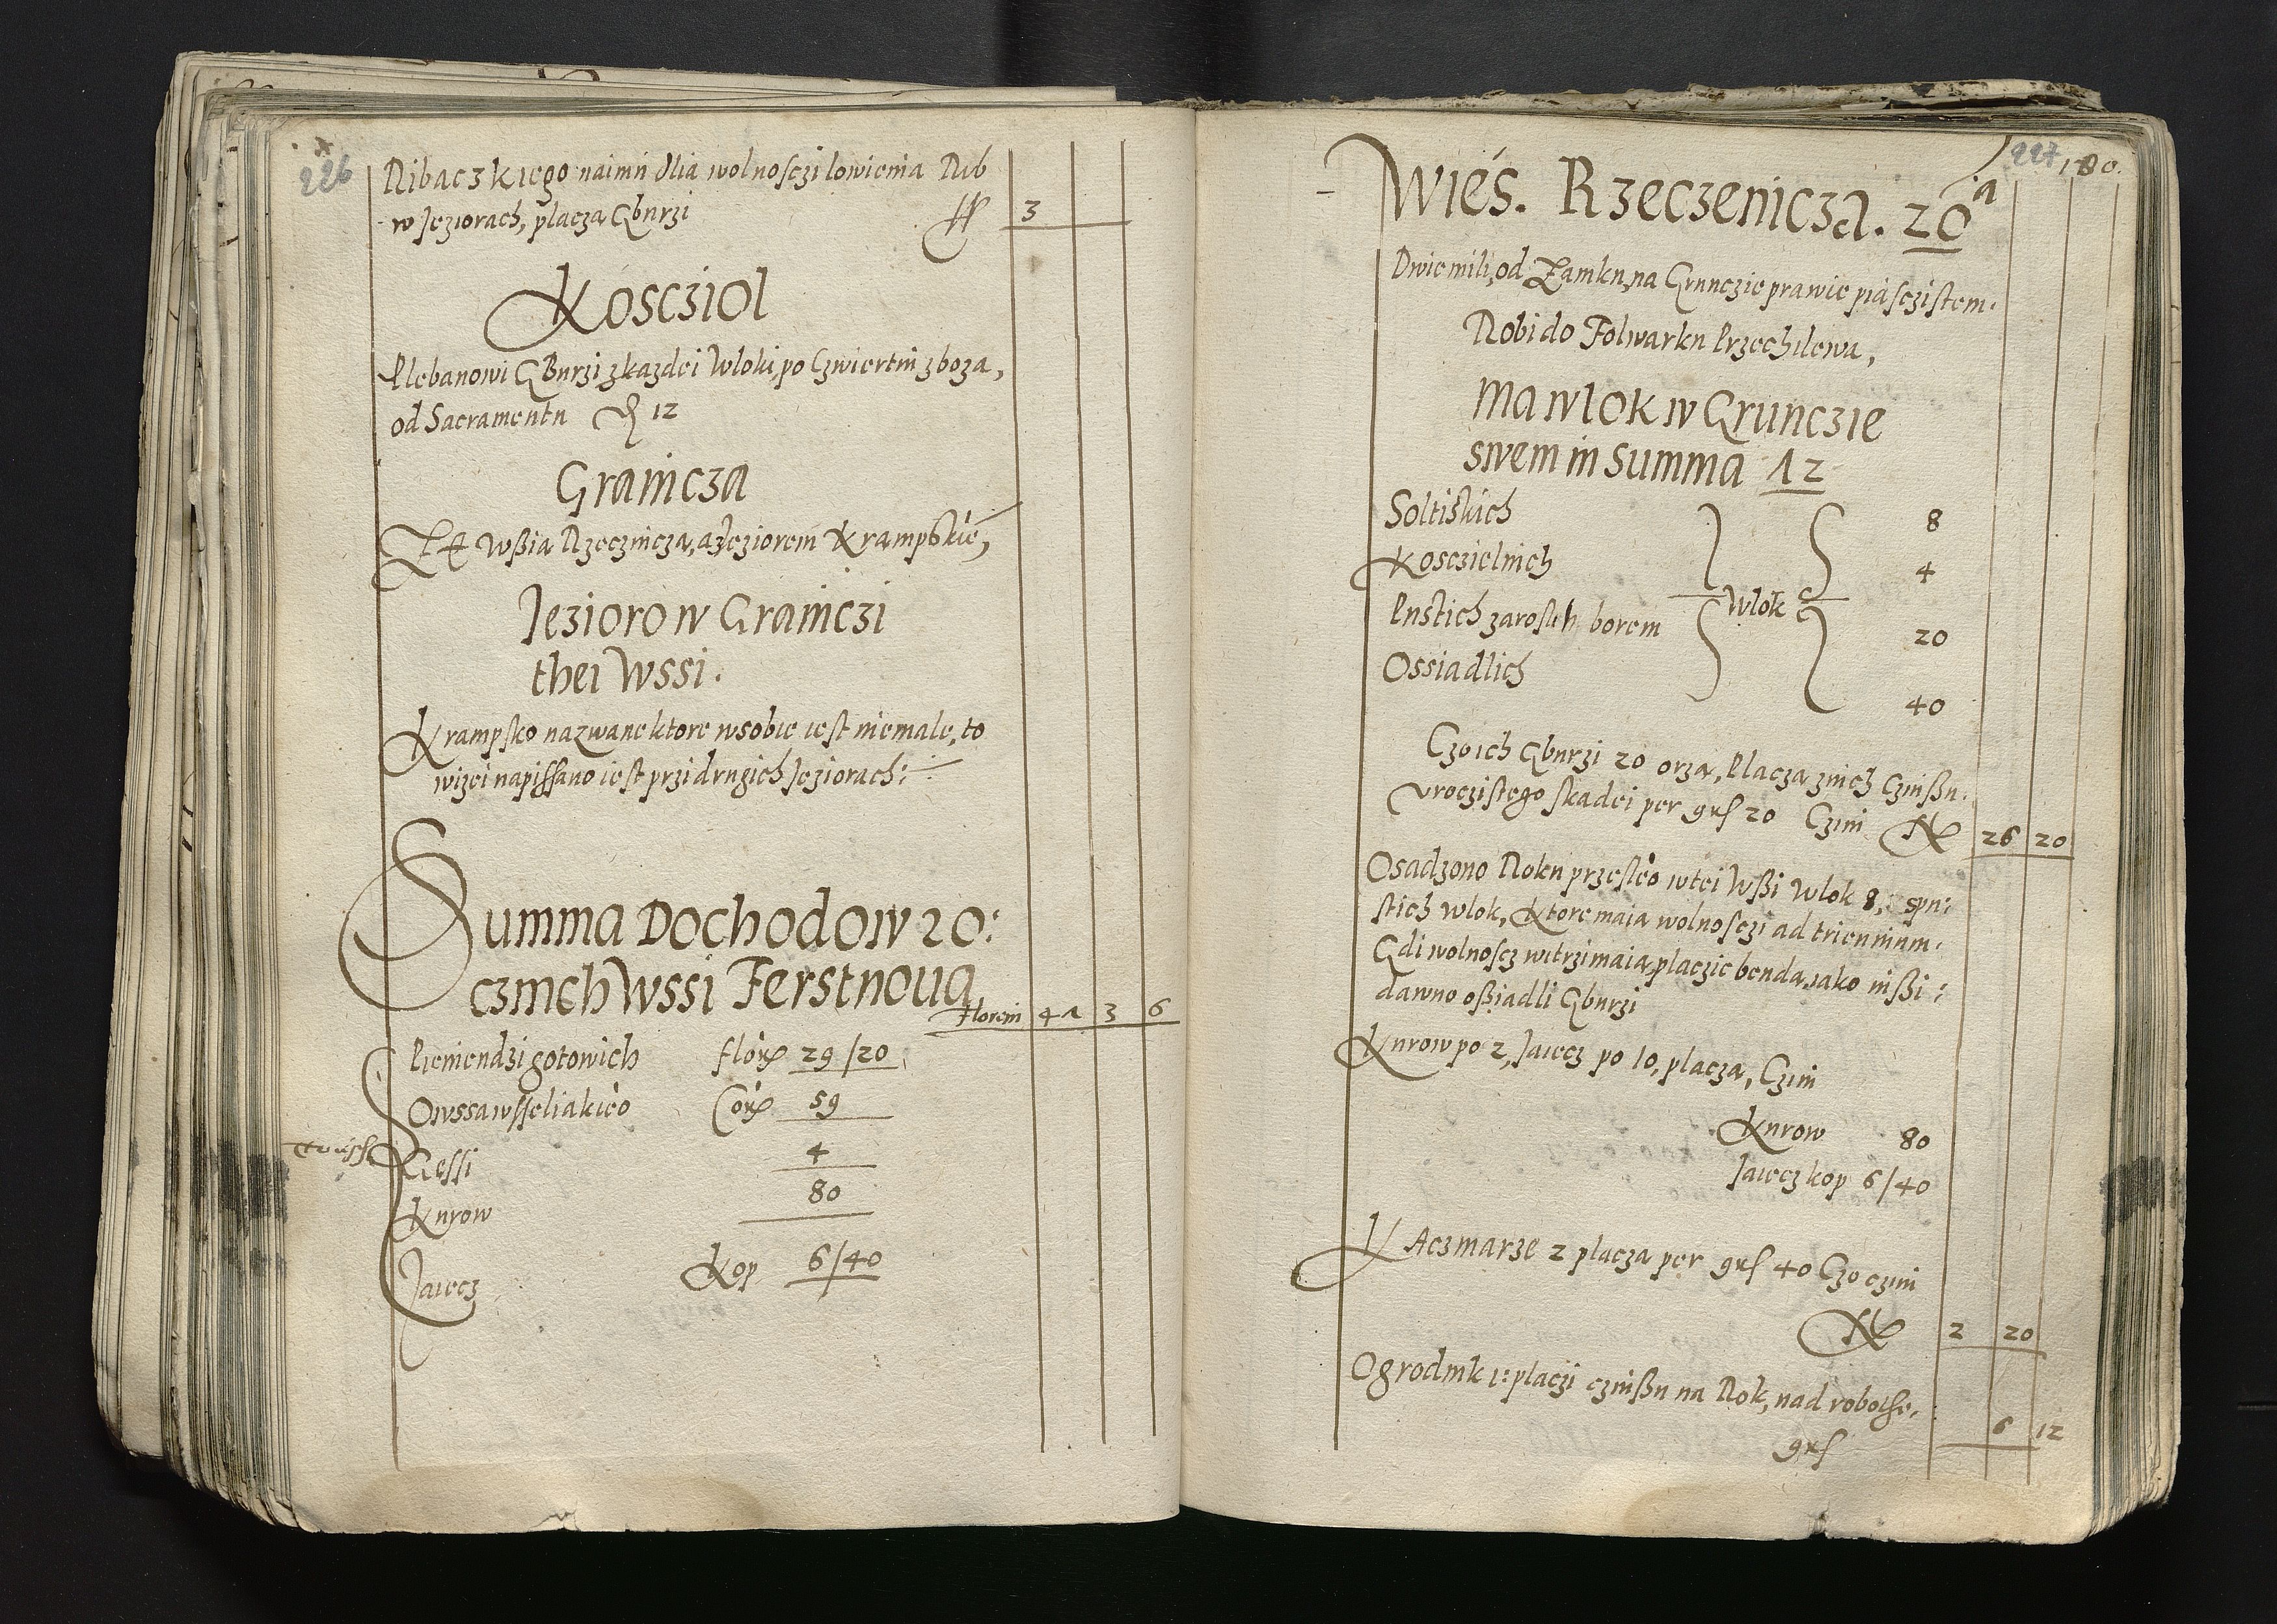 226
Ribaczkiego naimu dlia wolnosczi lowienia Rib
w Jeziorach, placza Gburzi ff 3
Koscziol
Plebanowi GBurzi z kazdei Wloki, po Czwiertni zboza,
od Sacramentu 12
Grainicza
Ze Wßia Rzecznicza, a Jeziorem Krampskie,
Jezioro w Grainiczi
thei Wssi.
Krampsko nazwane ktore w sobie iest niemale, to
wizei napissano iest przi drugich Jeziorach:
Summa Dochodow ro:
cznich Wssi Ferstnoua
Floreni 41 3 6
Pieniendzi gotowich flor 29/20
Owssa wsseliakieo Cor 59
Gessi 4
Kurow 80
Jaiecz Kop 6/40
227 180.
Wies. Rzeczenicza. 20a
Dwie mili, od Zamku, na Grunczie prawie piasczistem.
Robi do Folwarku Przechlewa,
Ma wlok w Grunczie
swem in Summa 72
Soltiskich 8
Kosczielnich 4
Wlok
Pustich zaroslich borem 20
Ossiadlich 40
Czo ich Gburzi 20 orza, Placza z nich Czinßu
vroczistego s kadei per grs 20 Czini ff 26 20
Osadzono Roku przesleo w tei Wßi Wlok 8, s pu:
stich wlok, Ktore maia wolnosczi ad triennium.
Gdi wolnoscz witrzimaia, placzic benda, iako inßi:
dawno oßiadli Gburzi
Kurow po 2, Jaiecz po 10, placza, Czini
Kurow 80
Jaiecz kop 6/40
Kaczmarze 2 placza per grs 40 Czo czini
ff 2 20
Ogrodnik 1: placzi czinßu na Rok, nad robothe,
grs 6 12